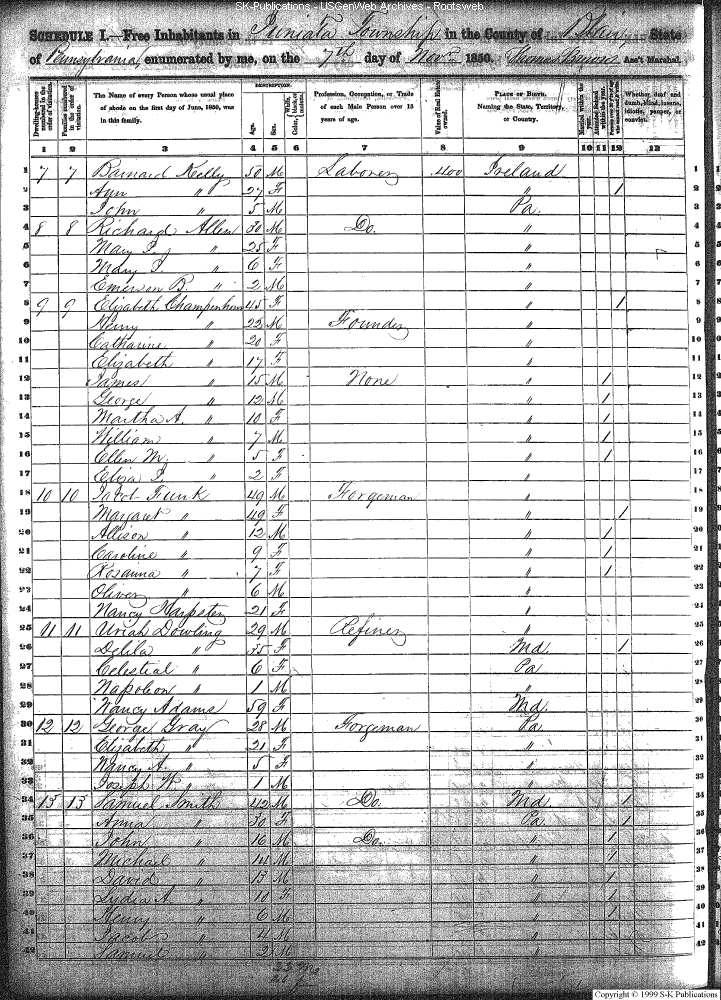 SK-Publications - USGenWeb Archives - Rootsweb
SCHEDULE I.—Free Inhabitants in Juniata Township in the County of Blair State
of Pennsylvania, enumerated by me, on the 7th day of Novr. 1850. Thomas Ass't Marshal.
Dwelling-houses numbered in the order of visitation.
Families numbered in the order of visitation.
The Name of every Person whose usual place of abode on the first day of June, 1850, was in this family.
DESCRIPTION.
Age.
Sex.
Color,
Profession, Occupation, or Trade of each Male Person over 15 years of age.
Value of Real Estate owned.
PLACE OF BIRTH. Naming the State, Territory, or Country.
Married within the year.
Attended School within the year.
Whether deaf and dumb, blind, insane, idiotic, pauper, or convict.
1 2 3 4 5 6 7 8 9 10 11 12 13
1 7 7 Barnard Kelly 50 M Laborer 400 Ireland 1
2 Ann " 27 F " 1 2
3 John " 5 M Pa. 3
4 8 8 Richard Allen 30 M Do. " 4
5 Mary " 25 F " 5
6 Mary " 6 F " 6
7 Emerson B. " 2 M " 7
8 9 9 Elizabeth 45 F " 1 8
9 Henry " 22 M Founder " 9
10 Catharine " 20 F " 10
11 Elizabeth " 17 F " 11
12 James " 15 M None " 1 12
13 George " 12 M " 1 13
14 Martha A. " 10 F " 1 14
15 William " 7 M " 1 15
16 Ellen M. " 5 F " 1 16
17 Eliza " 2 F " 17
18 10 10 Jacob Funk 49 M Forgeman " 18
19 Margaret " 49 F " 1 19
20 Allison " 12 M " 1 20
21 Caroline " 9 F " 1 21
22 Rosanna " 7 F " 1 22
23 Oliver " 6 M " 23
24 Nancy Harpster 21 F " 24
25 11 11 Uriah Dowling 29 M Refiner " 25
26 Delila " 35 F Md. 1 26
27 Celestial " 6 F Pa 27
28 Napoleon " 1 M " 28
29 Nancy Adams 59 F Md. 29
30 12 12 George Gray 28 M Forgeman Pa 30
31 Elizabeth " 21 F " 31
32 Nancy A. " 5 F " 32
33 Joseph W. " 1 M " 33
34 13 13 Samuel Smith 42 M Do. Md. 1 34
35 Anna " 30 F Pa 1 35
36 John " 16 M Do. " 1 36
37 Michael " 14 M " 1 37
38 David " 13 M " 1 38
39 Lydia A. " 10 F " 1 39
40 Henry " 6 M " 1 40
41 Jacob " 4 M " 41
42 Samuel " 2 M " 42
Copyright © 1999 S-K Publications